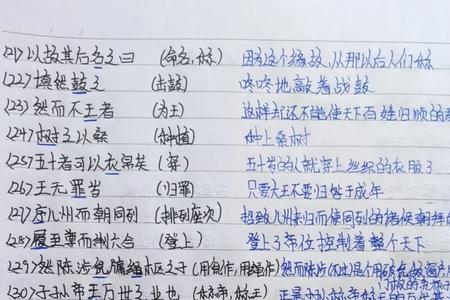 (21)以故其后名之曰 (命名,称) 因为这个缘故,从那以后人们称
(22)填然鼓之 (击鼓) 咚咚地敲着战鼓
(23)然而不王者 (为王) 这样却还不能使天下百姓归顺的
(24)树之以桑 (种植) 种上桑树
(25)五十者可以衣帛矣 (穿) 五十岁的人就穿上丝织的衣服了
(26)王无罪岁 (归罪) 只要大王不要归咎于年成
(27)序八州而朝同列 (排列座次) 招致八州归而使同列的诸侯朝拜
(28)履至尊而制六合 (登上) 登上帝位控制着整个天下
(29)然陈涉瓮牖绳枢之子 (用 作,用 作) 然而陈涉 是个用破瓮做窗户
(30)子孙帝王万世之业也 (称帝,称王) 正是子孙 帝称王